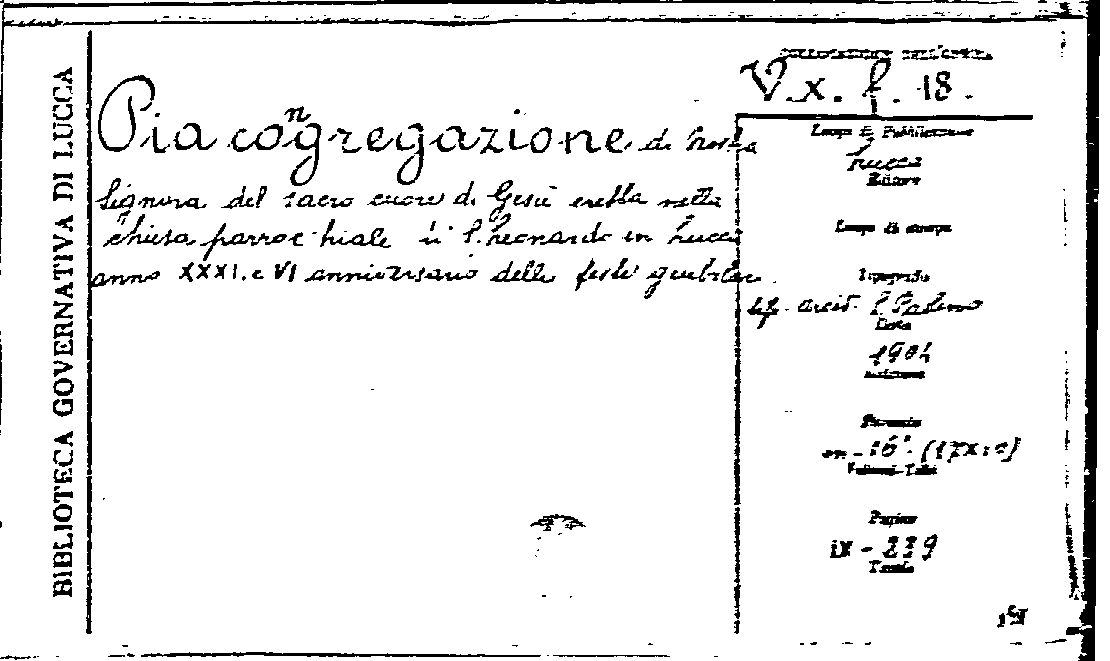 BIBLIOTECA GOVERNATIVA DI LUCCA
V. x. f. 18.
Pia congregazione di Nostra
Signora del sacro cuore di Gesù eretta nella
chiesa parrocchiale di S. Leonardo in Lucca
anno XXXI. e VI anniversario delle feste giubilari
Luogo di Pubblicazione
Lucca
Editore
Luogo di stampa
Tipografo
tip. arciv. S. Paolino
Data
1904
Edizione
Formato
in-16° (17x10)
Volumi-Tomi
Pagine
IX-239
Tavole